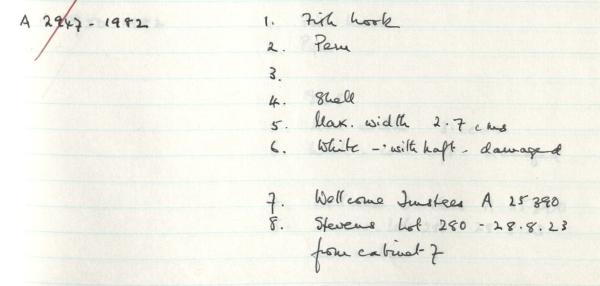 A 2947 - 1982
1. Fish hook
2. Peru
3.
4. Shell
5. Max. width 2.7 cms
6. White - with haft - damaged
7. Wellcome Trustees A 25390
8. Stevens Lot 280 - 28.8.23
from cabinet 7